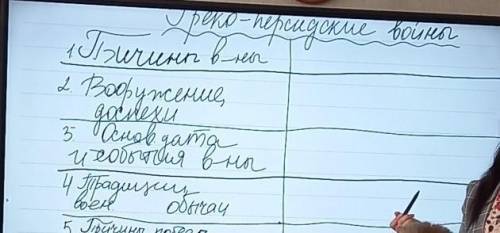 Греко-персидские войны
1 Причины в-ны
2. Вооружение,
доспехи
3. Основ дата
и события в-ны
4 Традиции
воен обычаи
5. Причины победы